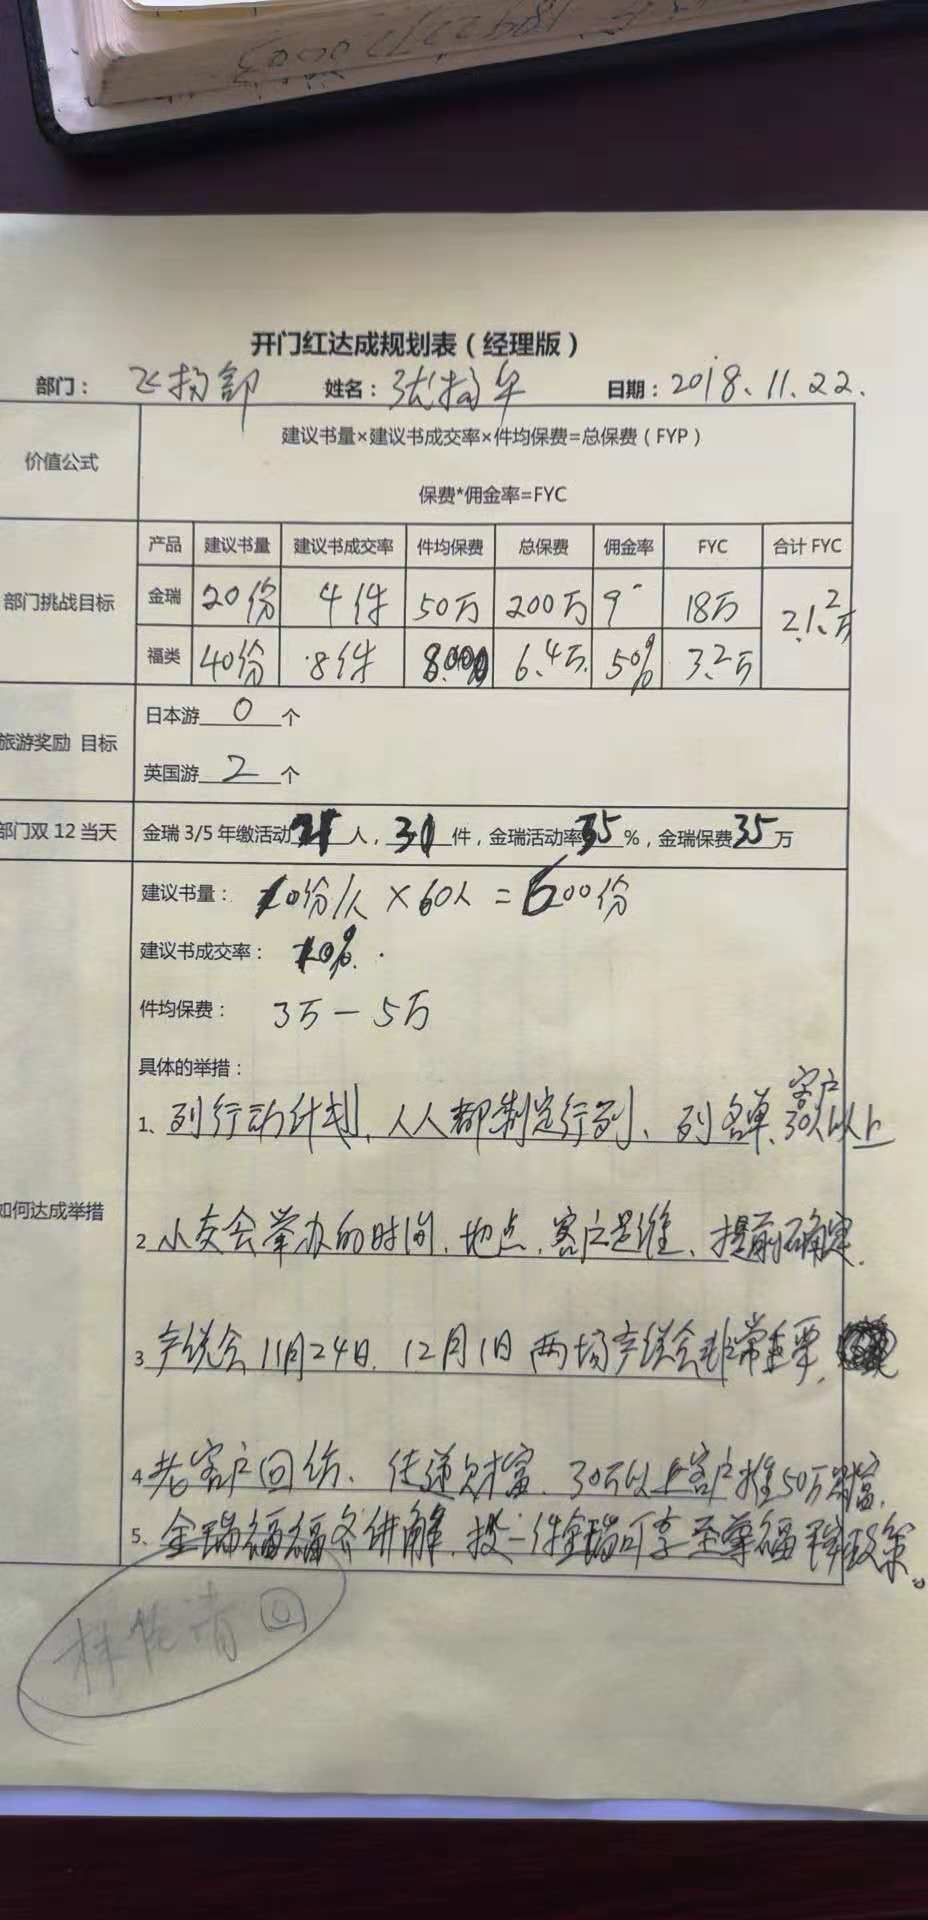 开门红达成规划表（经理版）
部门：飞扬部 姓名：张扬年 日期：2018.11.22.
价值公式
建议书量×建议书成交率×件均保费=总保费（FYP）
保费*佣金率=FYC
部门挑战目标
产品 建议书量 建议书成交率 件均保费 总保费 佣金率 FYC 合计 FYC
金瑞 20份 4件 50万 200万 9 18万 21.2万
福类 40份 8件 8000 6.4万 50% 3.2万
旅游奖励 目标
日本游 0 个
英国游 2 个
部门双 12 当天
金瑞 3/5 年缴活动 21 人，31 件，金瑞活动率 35 %，金瑞保费 35 万
如何达成举措
建议书量： 10份/人×60人=600份
建议书成交率： 10%.
件均保费： 3万—5万
具体的举措：
1、列行动计划，人人都制定行列、列名单、客户30人以上
2 小交会举办的时间、地点、客户是谁、提前确定.
3 产说会 11月24日、12月1日 两场产说会非常重要.
4 老客户回访、传递财富、30万以上客户推50万财富.
5、金瑞福福齐讲解，投一件金瑞可享至尊福 政策。